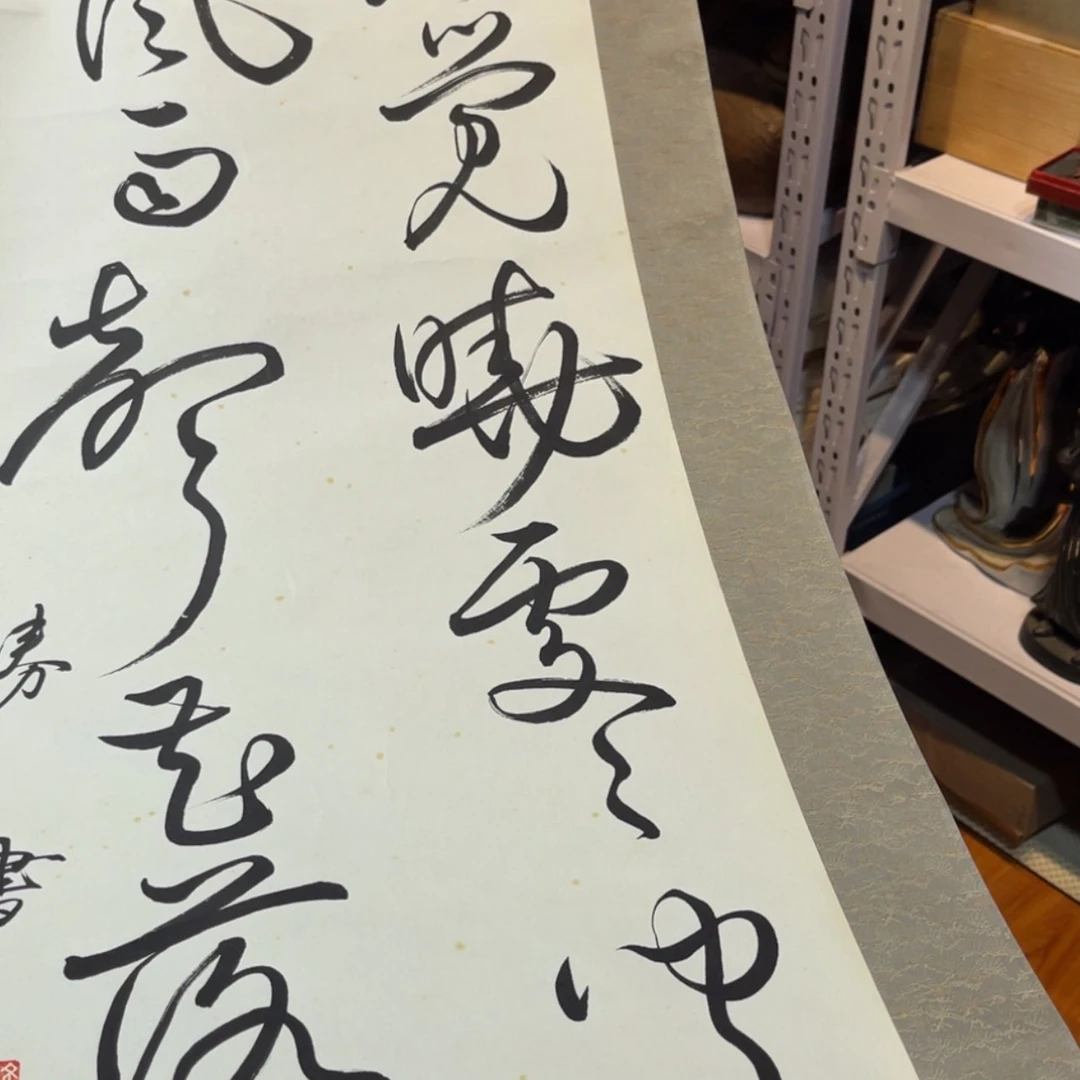 覺曉處々
風雨聲花落
書